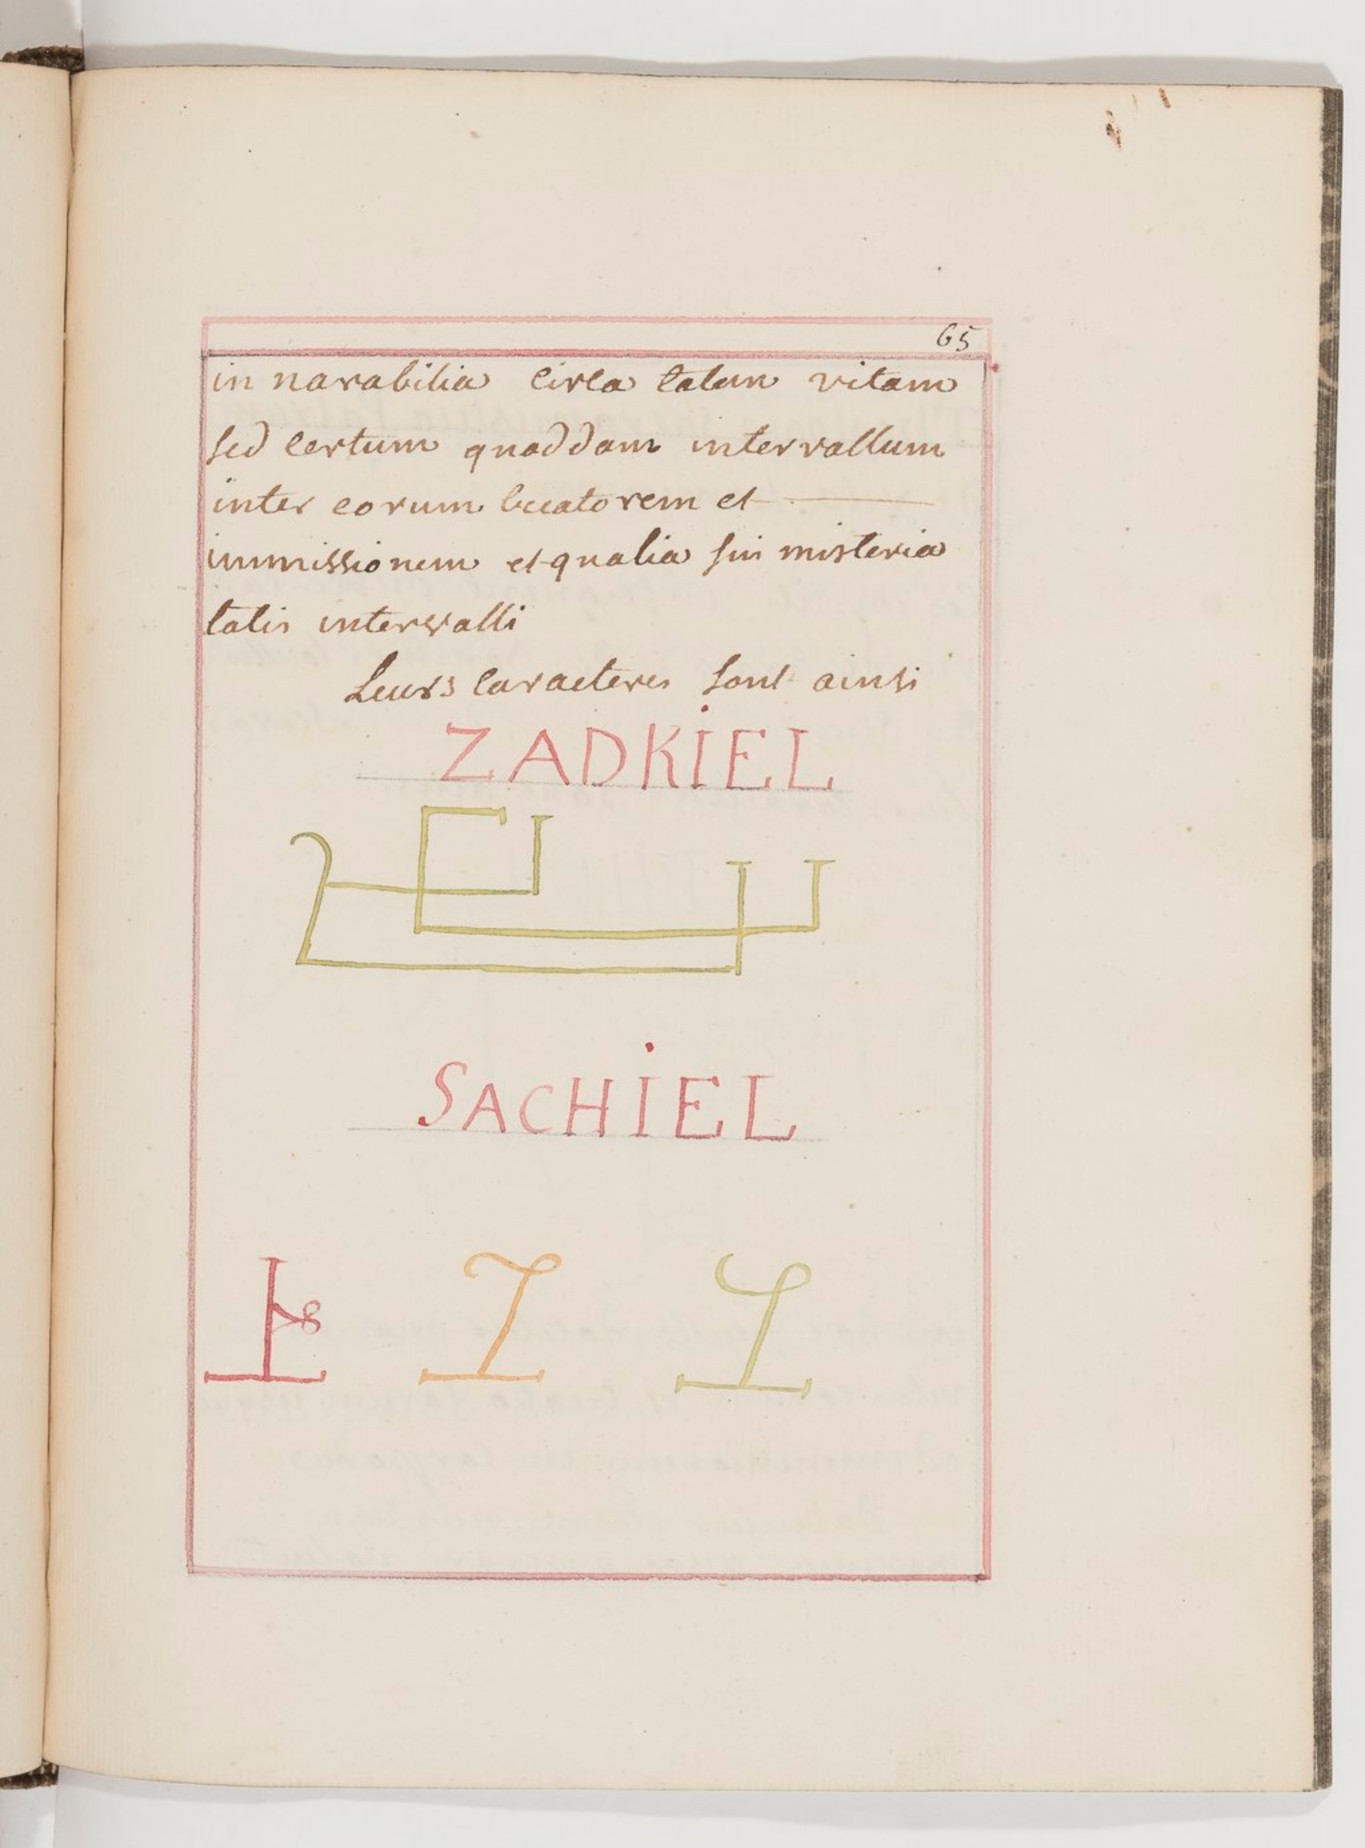 65
in narabilia circa talem vitam
sed certum quoddam intervallum
inter eorum creatorem et
immissionem et qualia sin misteria
talis intervalli
Leurs caracteres sont ainsi
ZADKIEL
SACHIEL